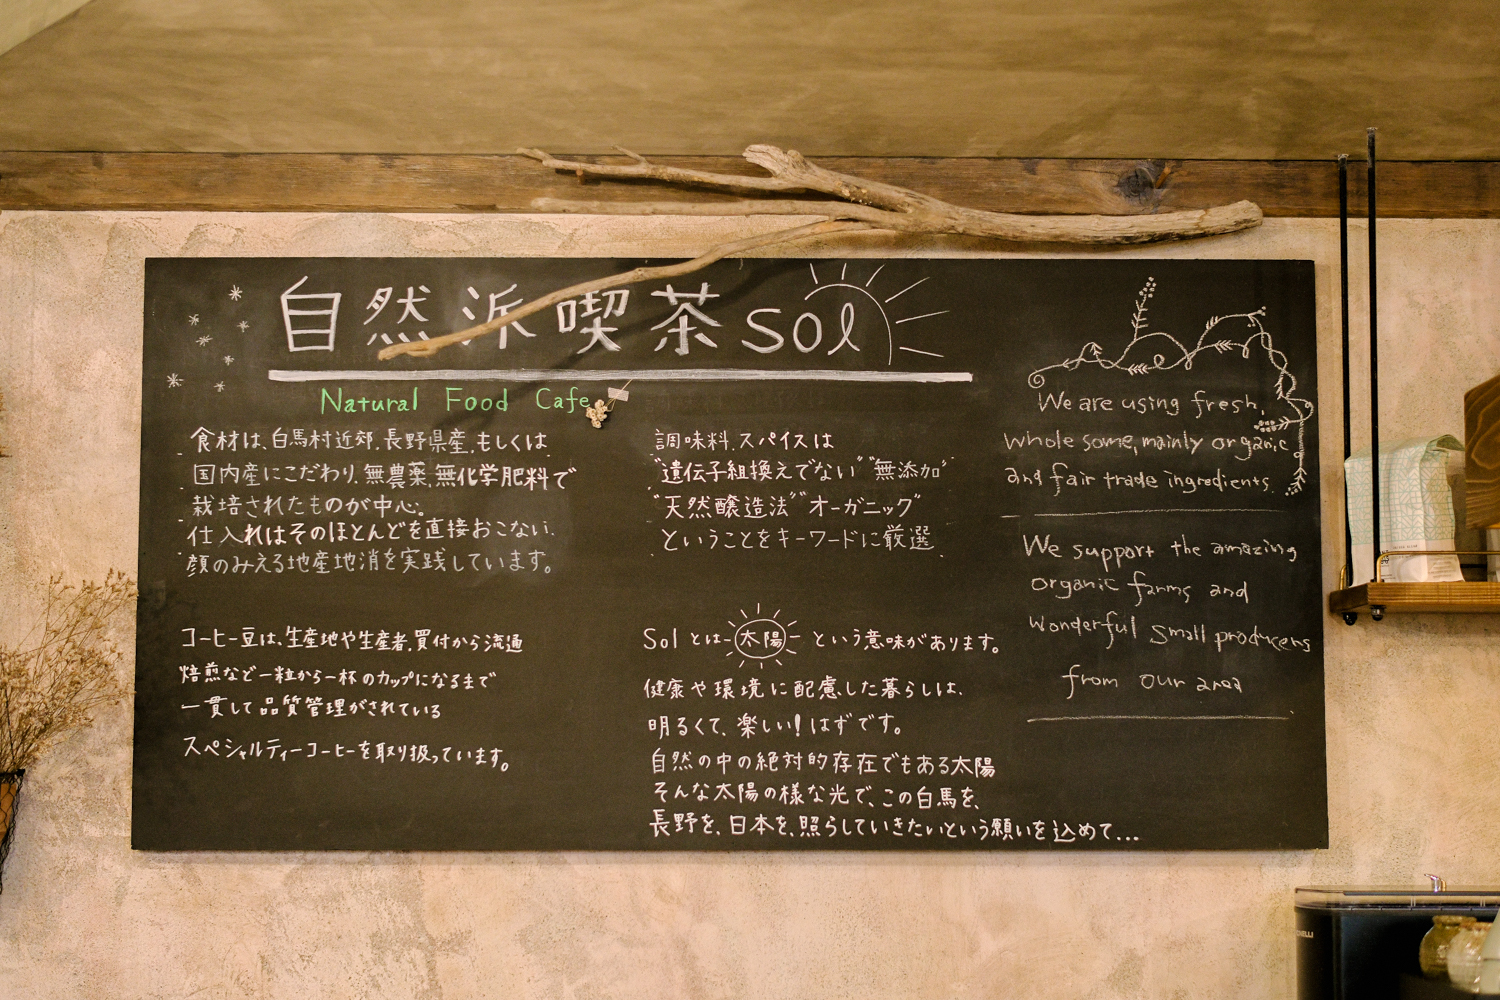 自然派喫茶sol
Natural Food Cafe
食材は、白馬村近郊、長野県産、もしくは
国内産にこだわり、無農薬、無化学肥料で
栽培されたものが中心。
仕入れはそのほとんどを直接おこない、
顔のみえる地産地消を実践しています。
コーヒー豆は、生産地や生産者、買付から流通
焙煎など一粒から一杯のカップになるまで
一貫して品質管理がされている
スペシャルティーコーヒーを取り扱っています。
調味料、スパイスは
"遺伝子組換えでない" "無添加"
"天然醸造法" "オーガニック"
ということをキーワードに厳選
Solとは太陽という意味があります。
健康や環境に配慮した暮らしは、
明るくて、楽しい!はずです。
自然の中の絶対的存在でもある太陽
そんな太陽の様な光で、この白馬を、
長野を、日本を、照らしていきたいという願いを込めて...
We are using fresh,
whole some, mainly organic
and fair trade ingredients.
We support the amazing
organic farms and
wonderful small producers
from our area